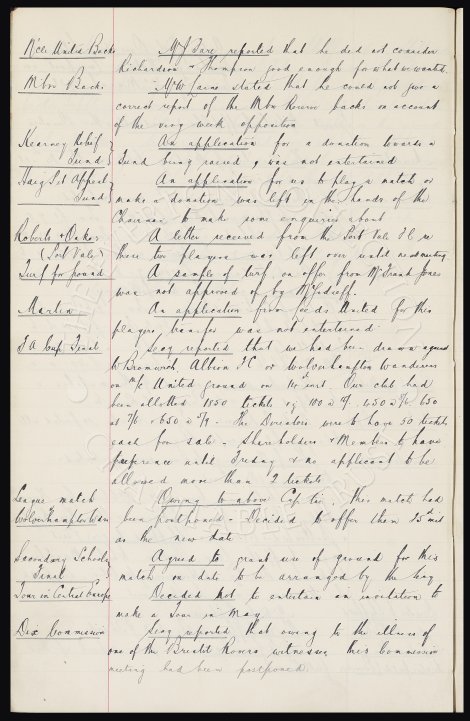 N'cle United Backs
Mr J Fare reported that he did not consider
Richardson & Thompson good enough for what we wanted.
Mbro Backs
Mr W stated that he could not give a
correct report of the Mbro Rovers backs on account
of the very weak opposition
Kearney Relief
Fund
An application for a donation towards a
Fund being raised was not entertained
Haig Set Appeal
Fund
An application for us to play a match or
make a donation was left in the hands of the
Chairman to make some enquiries about
Roberts & Oakes
(Port Vale)
A letter received from the Port Vale F C re
these two players was left over until next meeting
Turf for ground
A sample of turf on offer from Mr Frank Jones
was not approved of by
Martin
An application from Leeds United for this
players transfer was not entertained.
F A Cup Final
Secy reported that we had been drawn against
W Bromwich Albion F C or Wolverhampton Wanderers
on M/c United ground on 14th inst. Our club had
been allotted 1850 tickets
at The Directors were to have 50 tickets
each for sale - Shareholders & Members to have
preference until Friday & no applicant to be
allowed more than 2 tickets
League match
Wolverhampton Wan
Owing to above Cup tie, this match had
been postponed - Decided to offer them
as the new date
Secondary Schools
Final
Agreed to grant use of ground for this
match on date to be arranged by the Secy
Tour in Central Europe
Decided not to entertain an invitation to
make a Tour in May
Dix Commission
Secy reported that owing to the illness of
one of the Bristol Rovers witnesses this Commission
meeting had been postponed